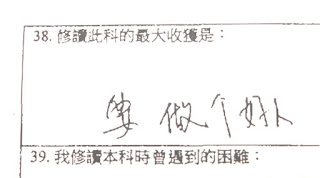 38. 修讀此科的最大收獲是：
要做个好人
39. 我修讀本科時曾遇到的困難：